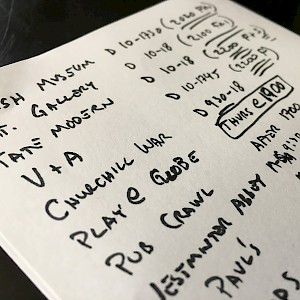 SH MUSEUM D 10-1730 (2030 FRI)
T. GALLERY D 10-18 (2100 FRI)
TATE MODERN D 10-18 (2200 F+S)
V+A D 10-1745 (2200 FRI)
CHURCHILL WAR D 930-18
PLAY @ GLOBE THURS @ 1900
PUB CRAWL AFTER 1700
ESTMINSTER ABBEY
PAUL'S
DS